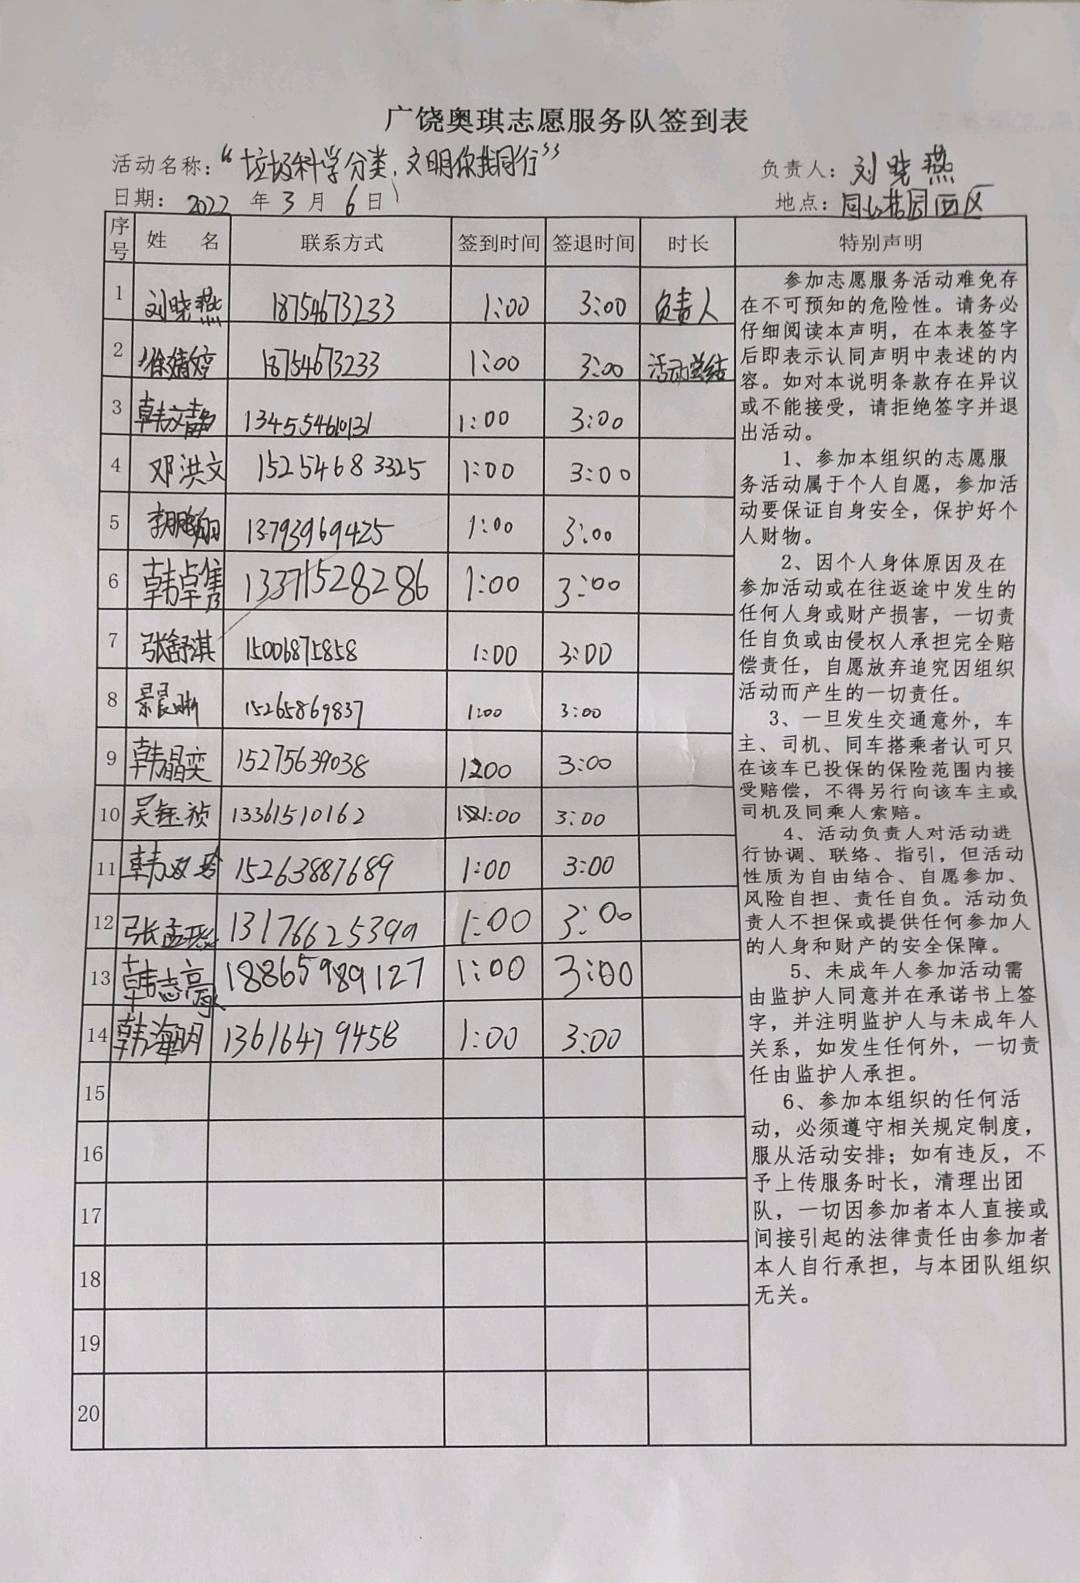 广饶奥琪志愿服务队签到表
活动名称：“垃圾科学分类，文明你我同行” 负责人：刘晓燕
日期：2022年3月6日 地点：同和花园西区
序号 姓名 联系方式 签到时间 签退时间 时长 特别声明
1 刘晓燕 18754673233 1:00 3:00 负责人
2 徐婧婷 18754673233 1:00 3:00 活动总结
3 韩文静 13455461013 1:00 3:00
4 邓洪文 15254683325 1:00 3:00
5 13793969425 1:00 3:00
6 韩卓隽 13371528286 1:00 3:00
7 张舒淇 15006875858 1:00 3:00
8 景晨晰 15265869837 1:00 3:00
9 韩晶奕 15275639038 1:00 3:00
10 吴钰祯 13361510162 1:00 3:00
11 韩 15263887689 1:00 3:00
12 张孟 1:00 3:00
13 韩志高 18865989127 1:00 3:00
14 韩海明 13616479458 1:00 3:00
15
16
17
18
19
20
参加志愿服务活动难免存
在不可预知的危险性。请务必
仔细阅读本声明，在本表签字
后即表示认同声明中表述的内
容。如对本说明条款存在异议
或不能接受，请拒绝签字并退
出活动。
1、参加本组织的志愿服
务活动属于个人自愿，参加活
动要保证自身安全，保护好个
人财物。
2、因个人身体原因及在
参加活动或在往返途中发生的
任何人身或财产损害，一切责
任自负或由侵权人承担完全赔
偿责任，自愿放弃追究因组织
活动而产生的一切责任。
3、一旦发生交通意外，车
主、司机、同车搭乘者认可只
在该车已投保的保险范围内接
受赔偿，不得另行向该车主或
司机及同乘人索赔。
4、活动负责人对活动进
行协调、联络、指引，但活动
性质为自由结合、自愿参加、
风险自担、责任自负。活动负
责人不担保或提供任何参加人
的人身和财产的安全保障。
5、未成年人参加活动需
由监护人同意并在承诺书上签
字，并注明监护人与未成年人
关系，如发生任何外，一切责
任由监护人承担。
6、参加本组织的任何活
动，必须遵守相关规定制度，
服从活动安排；如有违反，不
予上传服务时长，清理出团
队，一切因参加者本人直接或
间接引起的法律责任由参加者
本人自行承担，与本团队组织
无关。